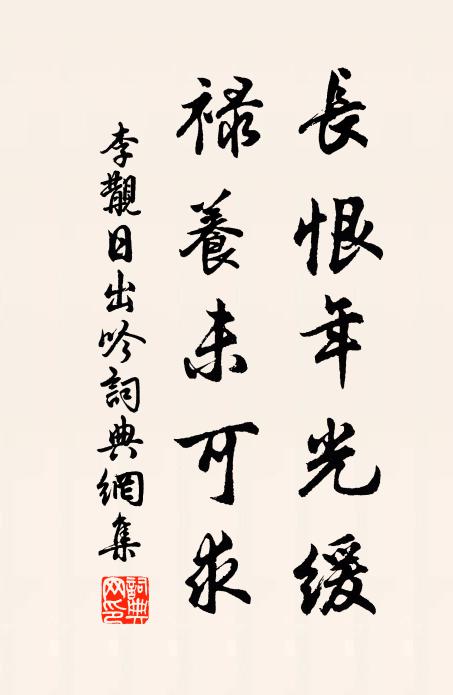 長恨年光緩
禄養未可求
李觀日出吟詞典網集
詞典網印